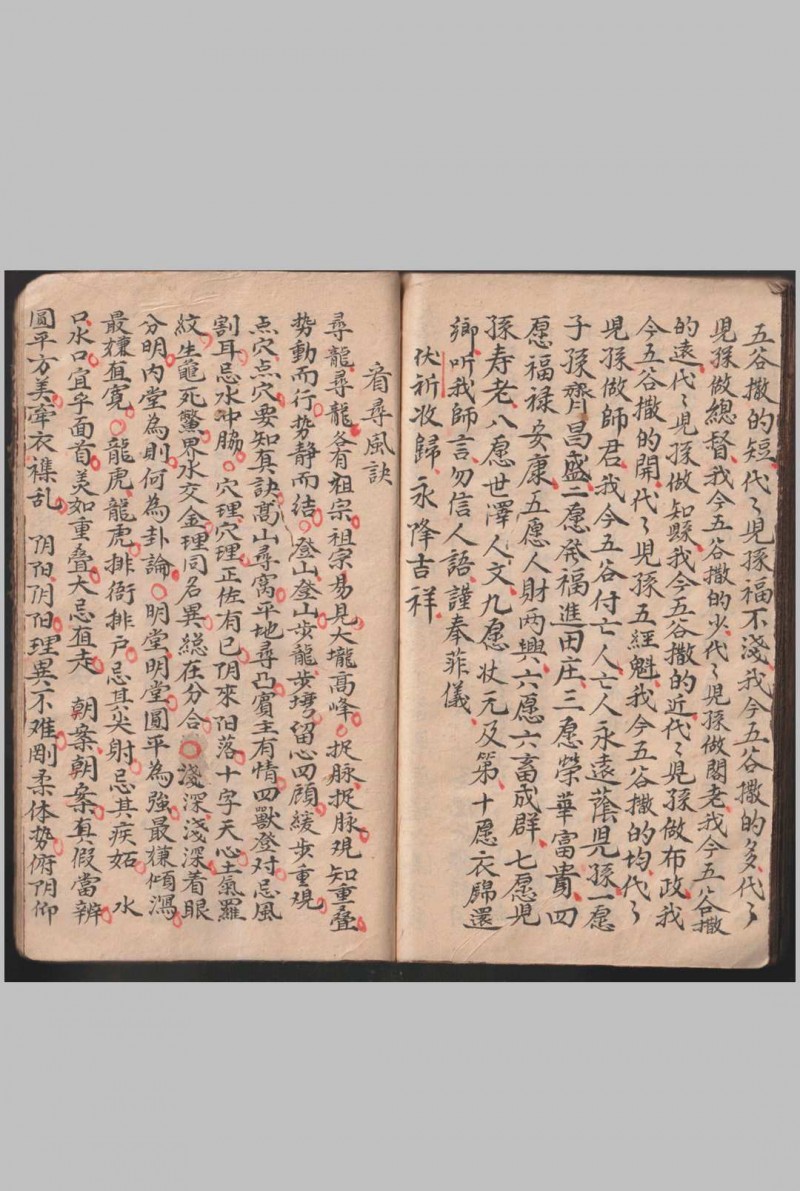 五谷撒的短代〻児孫福不淺我今五谷撒的多代〻
児孫做總督我今五谷撒的少代〻児孫做閣老我今五谷撒
的遠代〻児孫做知縣我今五谷撒的近代〻児孫做布政我
今五谷撒的開代〻児孫五經魁我今五谷撒的均代〻
児孫做師君我今五谷付亡人亡人永遠蔭児孫一愿
子孫齊昌盛二愿發福進田庄三愿榮華富貴四
愿福禄安康五愿人財両興六愿六畜成群七愿児
孫寿老八愿世澤人文九愿状元及第十愿衣錦還
鄉听我師言勿信人語謹奉菲儀
伏祈收歸永降吉祥
看尋風訣
尋龍尋龍各有祖宗祖宗易見大壠高峰捉脉捉脉观知重叠
势動而行势静而结登山登山步龍步塆留心四顧緩步重观
点穴点穴要知真訣髙山尋窩平地尋凸賓主有情四獸登对忌風
割耳忌水冲脇穴理穴理正佐有已阴來阳落十字天心土氣羅
紋生龜死鱉界水交金理同名異総在分合淺深淺深着眼
分明内堂為則何為卦論明堂明堂圓平為強最嫌傾瀉
最嫌直寬龍虎龍虎排衙排户忌其尖射忌其疾妬水
口水口宜乎面首美如重叠大忌直走朝案朝案真假當辨
圓平方美牽衣襍乱阴阳阴阳理異不难剛柔体势俯阴仰